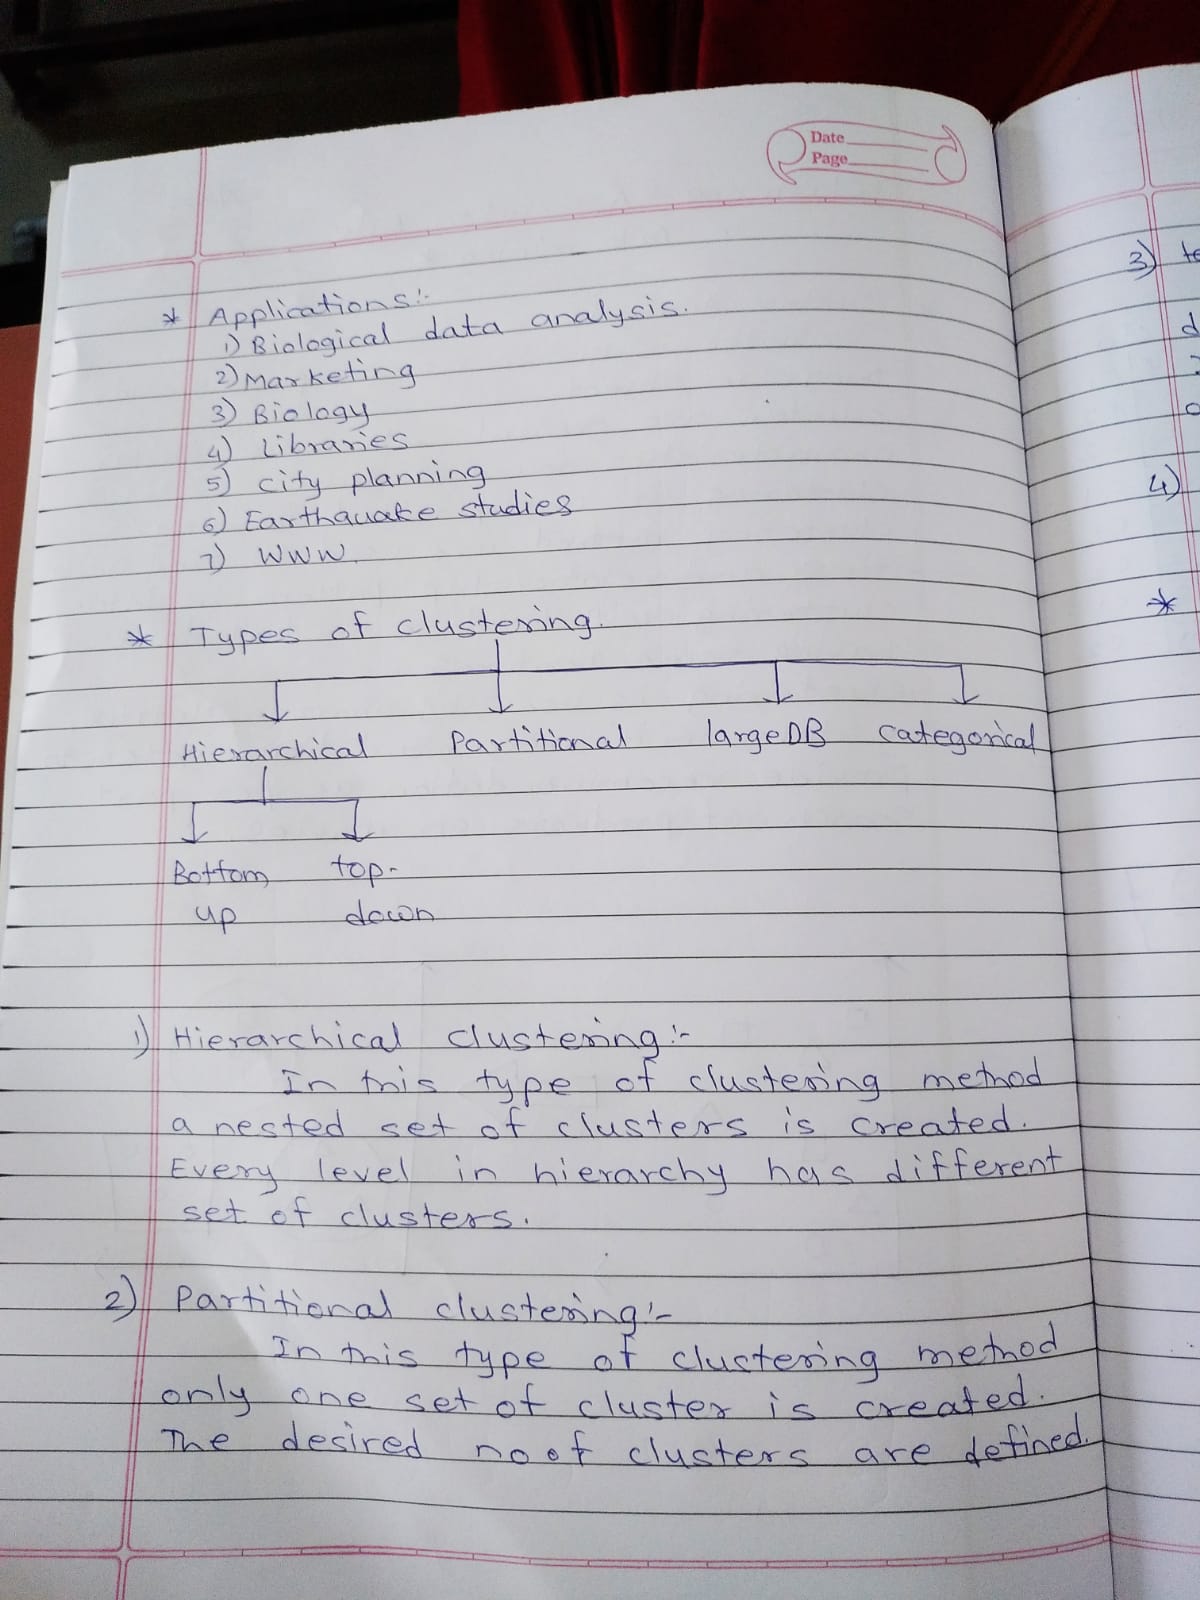 Date
Page
* Applications:-
1) Biological data analysis.
2) Marketing
3) Biology
4) Libraries
5) city planning
6) Earthauake studies
7) WWW.
* Types of clustering.
Hierarchical Partitional largeDB categorical
Bottom top-
up down
1) Hierarchical clustering:-
In this type of clustering method
a nested set of clusters is created.
Every level in hierarchy has different
set of clusters.
2) Partitional clustering:-
In this type of clustering method
only one set of cluster is created.
The desired no of clusters are defined.
3)
4)
*